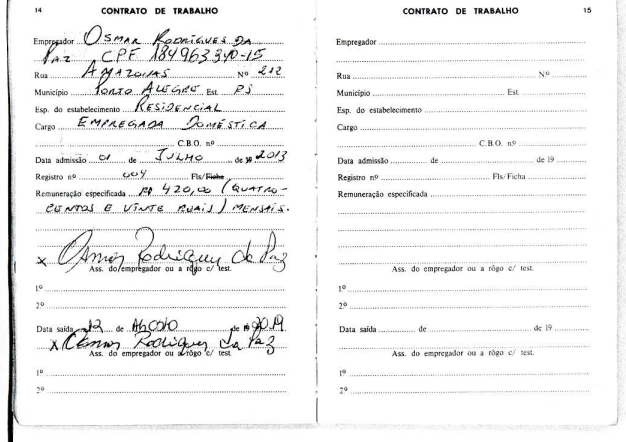 14 CONTRATO DE TRABALHO
Empregador OSMAR RODRIGUES DA
PAZ CPF 184963340-15
Rua AMAZONAS Nº 212
Município PORTO ALEGRE Est. RS
Esp. do estabelecimento RESIDENCIAL
Cargo EMPREGADA DOMÉSTICA
C.B.O. nº
Data admissão 01 de JULHO de 19 2013
Registro nº 004 Fls/Ficha
Remuneração especificada R$ 420,00 (QUATRO-
CENTOS E VINTE REAIS) MENSAIS.
x Osmar Rodrigues da Paz
Ass. do empregador ou a rôgo c/ test.
1º
2º
Data saída 12 de AGOSTO de 19 2019
x Osmar Rodrigues da Paz
Ass. do empregador ou a rôgo c/ test.
1º
2º
CONTRATO DE TRABALHO 15
Empregador
Rua Nº
Município Est.
Esp. do estabelecimento
Cargo
C.B.O. nº
Data admissão de de 19
Registro nº Fls/Ficha
Remuneração especificada
Ass. do empregador ou a rôgo c/ test.
1º
2º
Data saída de de 19
Ass. do empregador ou a rôgo c/ test.
1º
2º